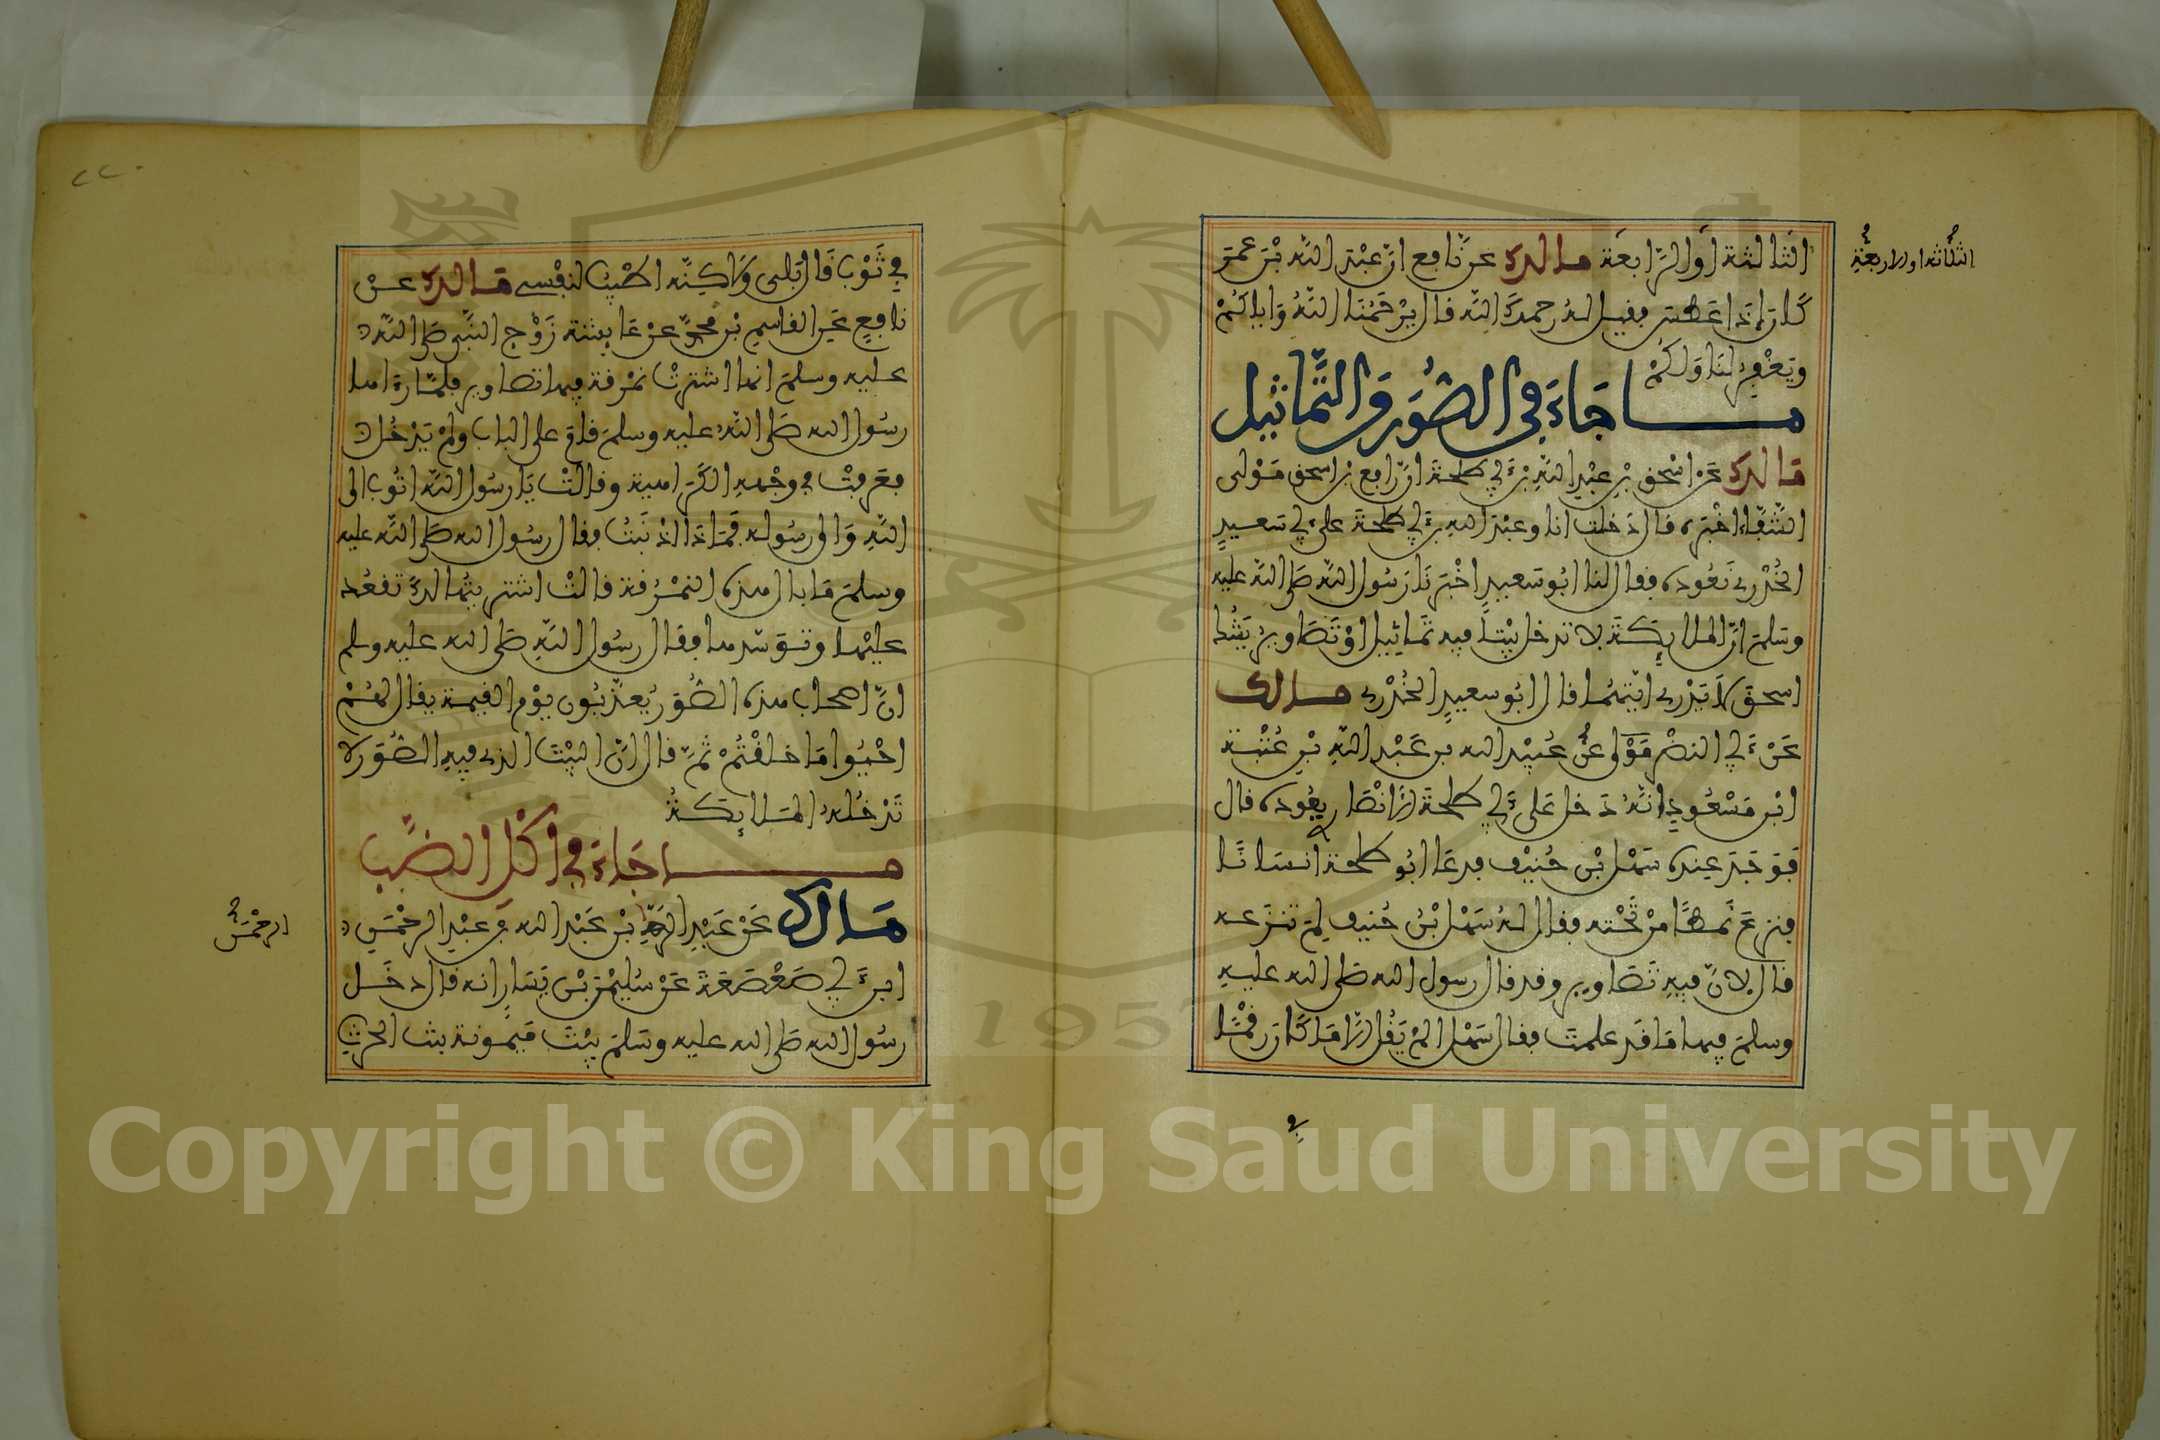 الثالثة أو الرابعة مالك عن نافع ان عبد الله بن عمر
الثلاثة او الاربعة
كان إذا عطس فقيل له رحمك الله قال يرحمنا الله وإياكم
ويغفر لنا ولكم
ما جاء في الصور والتماثيل
مالك عن اسحق بن عبد الله بن أبي طلحة ان رافع بن اسحق مولى
الشفاء اخبره قال دخلت انا وعبد الله بن أبي طلحة على أبي سعيد
الخدري نعوده فقال لنا ابو سعيد اخبرنا رسول الله صلى الله عليه
وسلم ان الملايكة لا تدخل بيتا فيه تماثيل او تصاوير يشك
اسحق لا يدري ايتهما قال ابو سعيد الخدري مالك
عن أبي النضر مولى عن عبيد الله بن عبد الله بن عتبة
ابن مسعود انه دخل على أبي طلحة الانصاري يعوده قال
فوجد عنده سهل بن حنيف فدعا ابو طلحة انسانا
فنزع نمطا من تحته فقال له سهل بن حنيف لم تنزعه
قال لان فيه تصاوير وقد قال رسول الله صلى الله عليه
وسلم فيها ما قد علمت فقال سهل الم يقل الا ما كان رقما
في
٢٢٠
في ثوب قال بلى ولاكنه اطيب لنفسي مالك عن
نافع عن القاسم بن محمد عن عايشة زوج النبي صلى الله
عليه وسلم انها اشترت نمرقة فيها تصاوير فلما رءاها
رسول الله صلى الله عليه وسلم قام على الباب ولم يدخل
فعرفت في وجهه الكراهية وقالت يا رسول الله اتوب الى
الله والى رسوله فماذا اذنبت فقال رسول الله صلى الله عليه
وسلم ما بال هذه النمرقة قالت اشتريتها لك تقعد
عليها وتوسدها فقال رسول الله صلى الله عليه وسلم
ان اصحاب هذه الصور يعذبون يوم القيمة يقال لهم
احيوا ما خلقتم ثم قال ان البيت الذي فيه الصور لا
تدخله الملايكة
ما جاء في اكل الضب
مالك عن عبد الرحمن بن عبد الله بن عبد الرحمن
الرحمن
ابن أبي صعصعة عن سليمن بن يسار انه قال دخل
رسول الله صلى الله عليه وسلم بيت ميمونة بنت الحرث
1957
Copyright © King Saud University